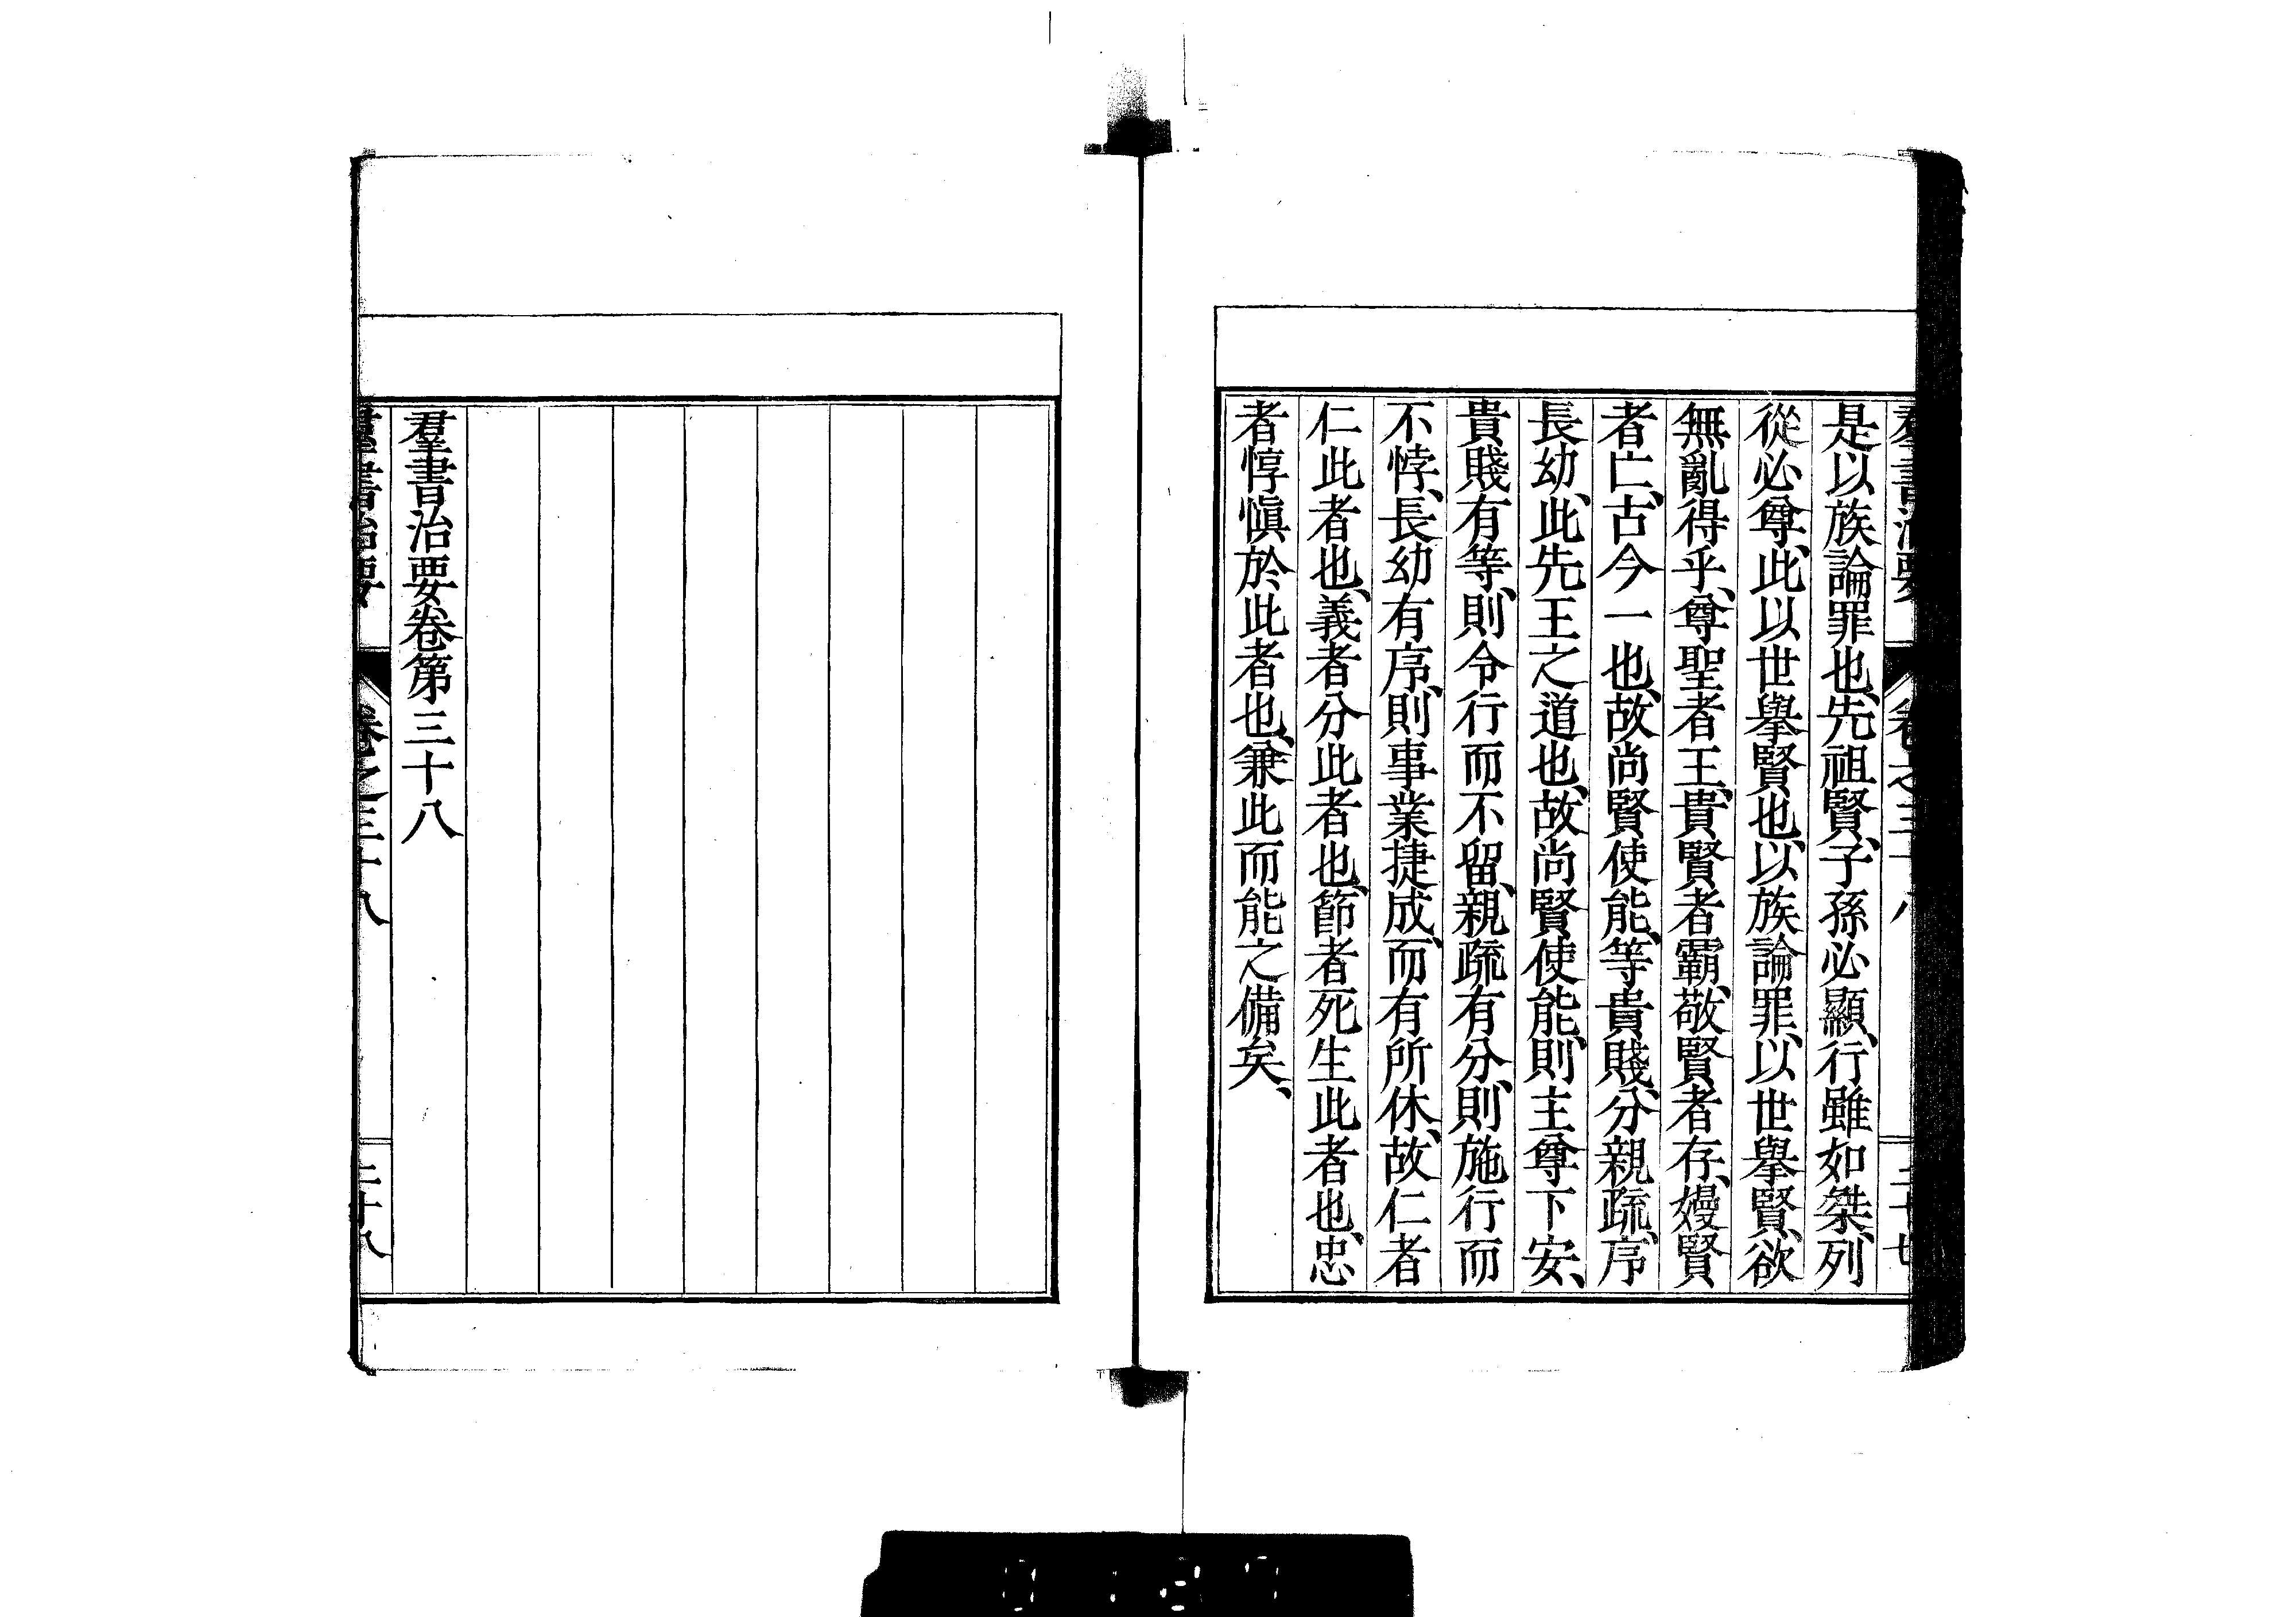 是以族論罪也、先祖賢、子孫必顯、行雖如桀、列
從必尊、此以世擧賢也、以族論罪、以世擧賢、欲
無亂得乎、尊聖者王、貴賢者霸、敬賢者存、嫚賢
者亡、古今一也、故尚賢使能、等貴賤、分親疏、序
長幼、此先王之道也、故尚賢使能、則主尊下安、
貴賤有等、則令行而不留、親疏有分、則施行而
不悖、長幼有序、則事業捷成、而有所休、故仁者
仁此者也、義者分此者也、節者死生此者也、忠
者惇愼於此者也、兼此而能之備矣、
羣書治要卷第三十八
羣書治要 卷之三十八 三十八